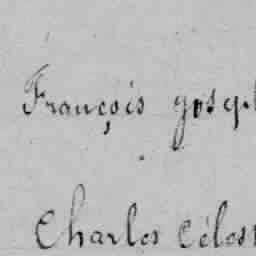 François Joseph
Charles Céles